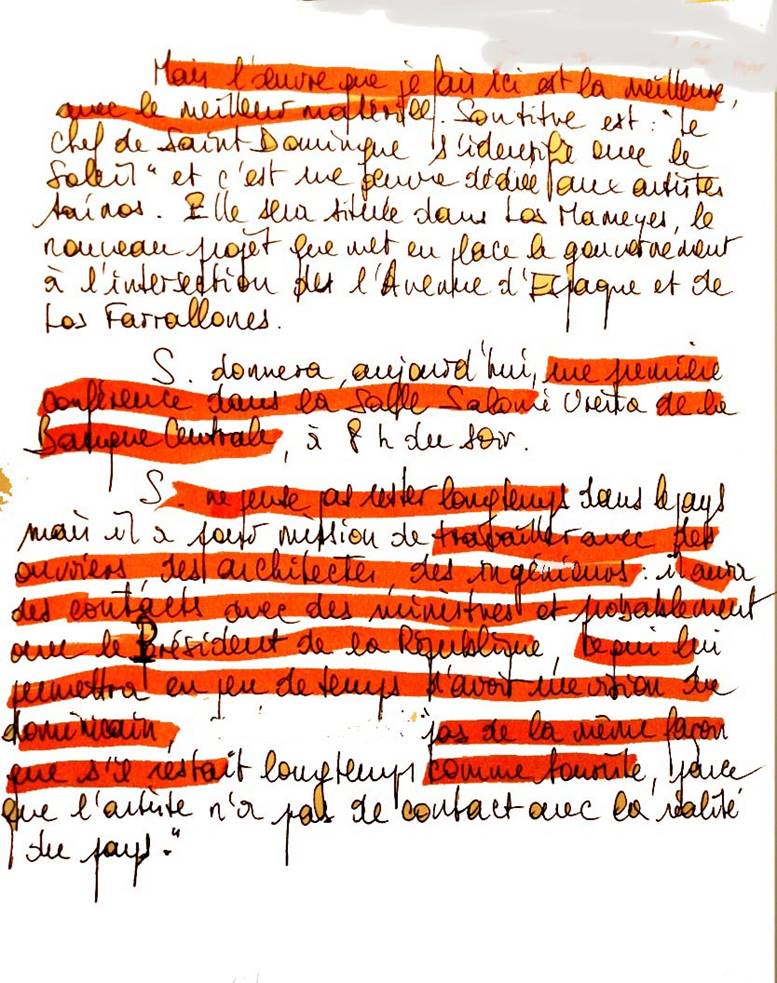 Mais l'œuvre que je fais ici est la meilleure,
avec le meilleur matériel. Son titre est : "Le
chef de Saint Domingue s'identifie avec le
Soleil" et c'est une œuvre dédiée aux artistes
taïnos. Elle sera située dans Los Mameyes, le
nouveau projet que met en place le gouvernement
à l'intersection de l'Avenue d'Espagne et de
Los Farrallones.
S. donnera, aujourd'hui, une première
conférence dans la Salle Salomé Ureña de la
Banque Centrale, à 8 h du soir.
S. ne pense pas rester longtemps dans le pays
mais il a pour mission de travailler avec des
ouvriers, des architectes, des ingénieurs : il aura
des contacts avec des ministres et probablement
avec le Président de la République, ce qui lui
permettra en peu de temps d'avoir une vision du
dominicain, pas de la même façon
que s'il restait longtemps comme touriste, parce
que l'artiste n'a pas de contact avec la réalité
du pays."